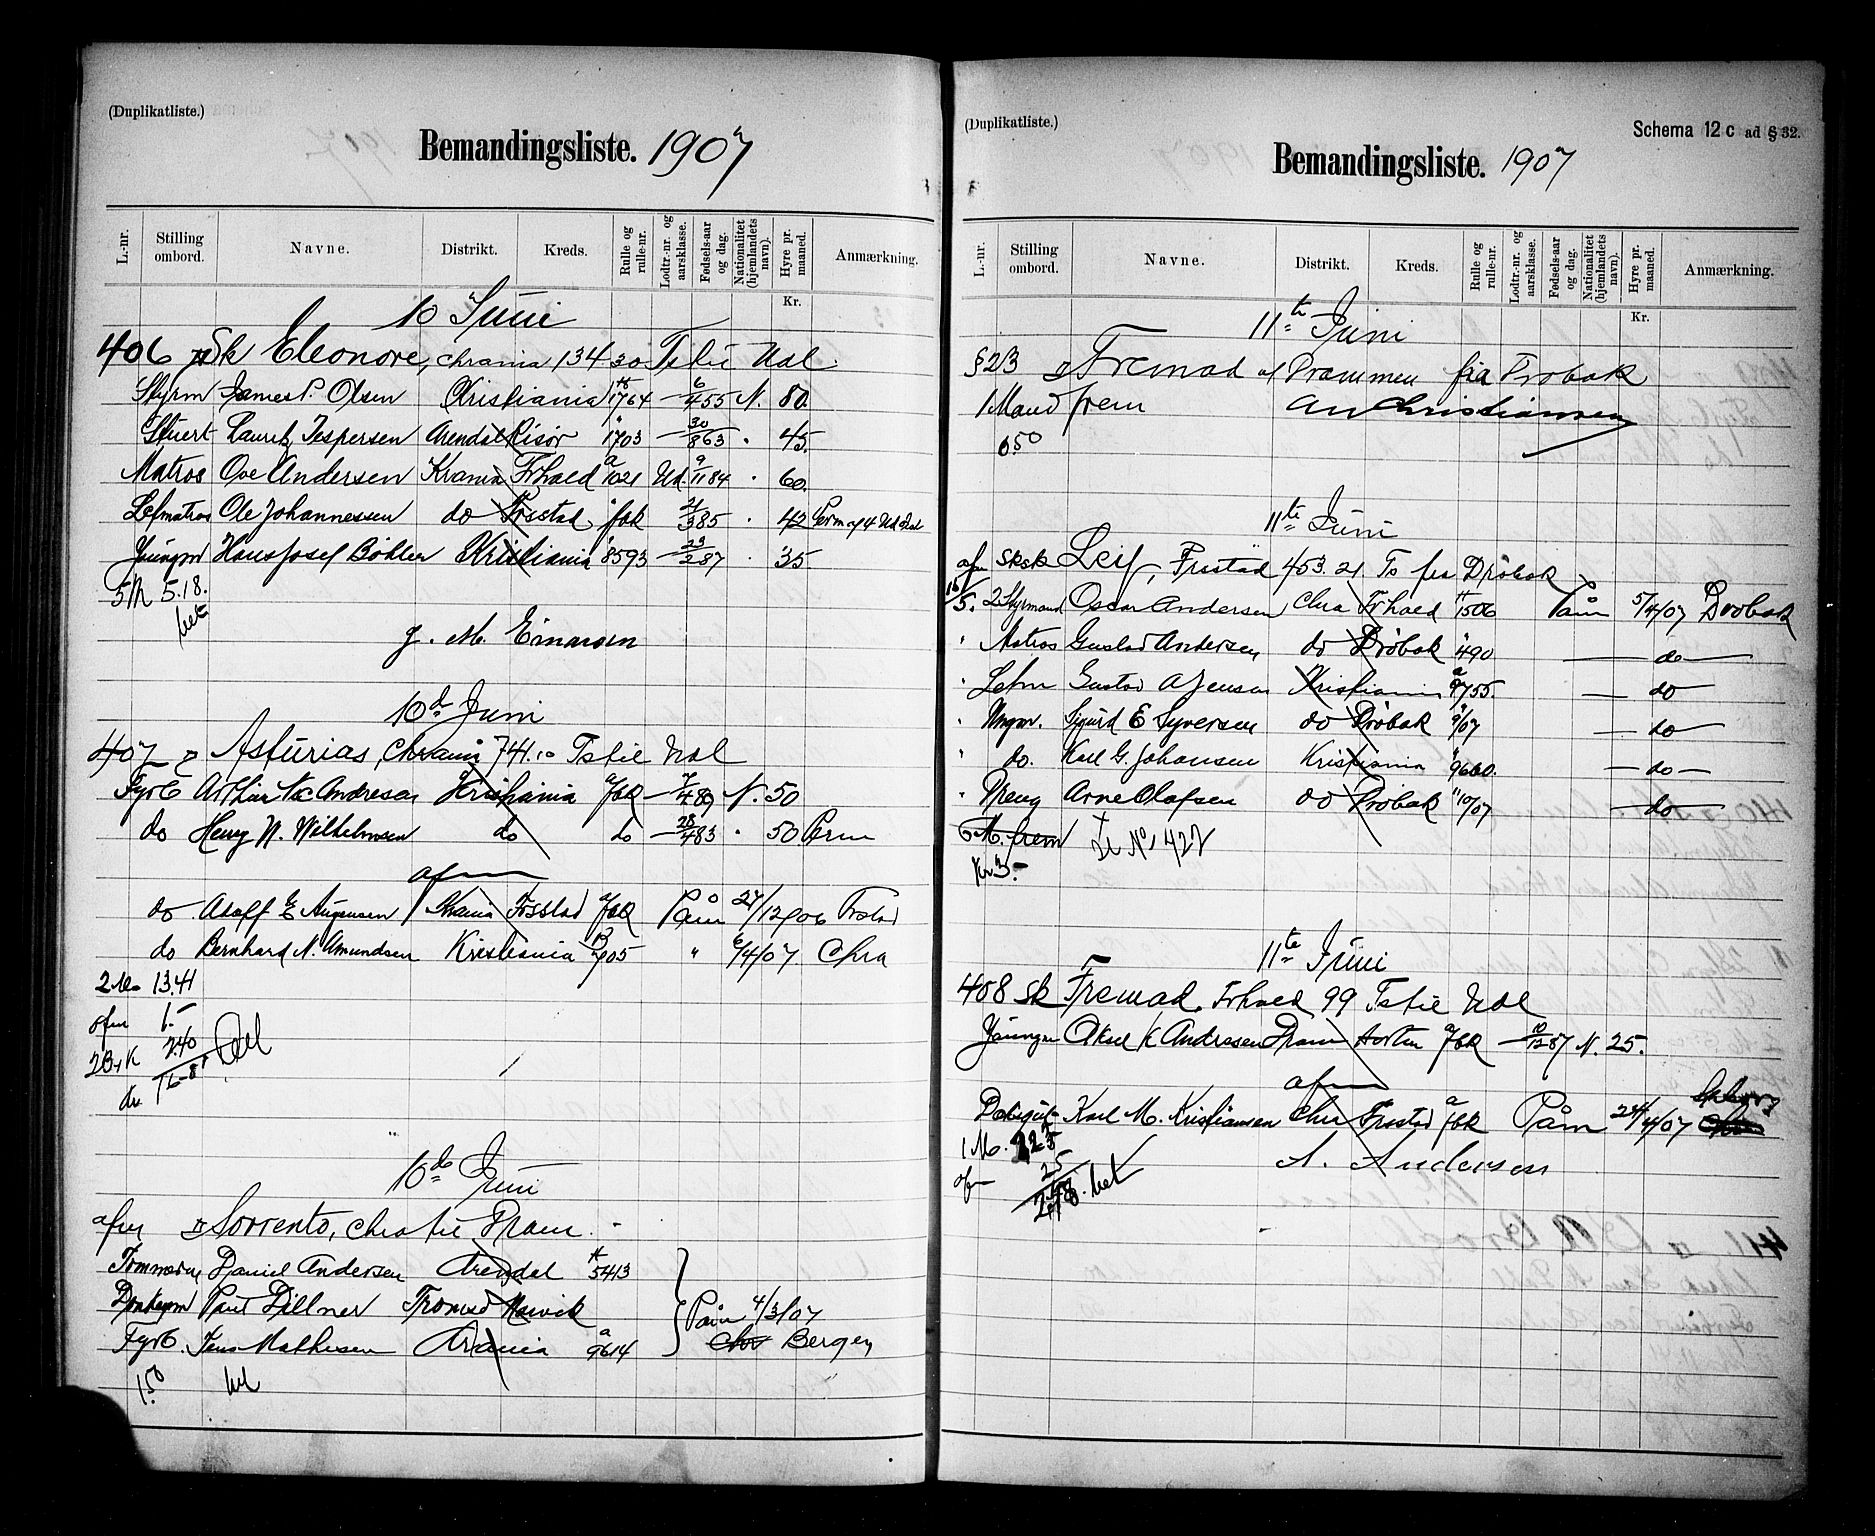 (Duplikatliste.)
Bemandingsliste. 1907
L.-nr. Stilling ombord. Navne. Distrikt. Kreds. Rulle og rulle-nr. Lodtr.-nr. og aarsklasse. Fødsels-aar og dag. Nationalitet (hjemlandets navn). Hyre pr. maaned. Anmærkning.
Kr.
10 Juni
406 Sk Eleonore, Chrania 134 30 Ts til Udl.
Styrm James P. Olsen Kristiania 1764 6/455 N. 80.
Stuert Lauritz Jespersen Arendal Risør 1703 30/863 " 45.
Matros Ove Andersen Krania Frhald a 1021 Ud. 9/1184 " 60.
Letmatros Ole Johannessen do Frstad fbk 21/385 " 42
Jüngm Hans Josef Bøhler Kristiania 8593 23/287 " 35
5 M 5.18.
bet
J. M. Einarsen
10d Juni
407 Asturias, Chrania 741.10 Ts til Udl
Fyrb Arthur Andresen Kristiania fbk 7/489 N. 50
do Henry W. Wilhelmsen do do 28/483 " 50 Perm
afm
do Adolf E Augensen Krania Frsstad fbk Paam 27/12 906 Frstad
do Bernhard N. Amundsen Kristiania 705 " 6/4/07 Chra
2 13.41
afm 1.-
2.40
10d Juni
afm Sorrento, Chra til Dram.
Tømmerm Daniel Andersen Arendal 5413
Donkeym Paul Dillner Tromsø Narvik
Paam 4/3/07
Fyrb. Jens Mathisen Krania a 9614 Bergen
1.50 bet
(Duplikatliste.)
Schema 12 c ad § 32.
Bemandingsliste. 1907
L.-nr. Stilling ombord. Navne. Distrikt. Kreds. Rulle og rulle-nr. Lodtr.-nr. og aarsklasse. Fødsels-aar og dag. Nationalitet (hjemlandets navn). Hyre pr. maaned. Anmærkning.
Kr.
11te Juni
§ 23 Fremad af Drammen fra Drobak
1 Mand frem An Christiansen
0.50
11te Juni
afm Sksk Leif, Frstad 453.21 Ts fra Drøbak
2 Styrmand Oscar Andersen Chra Frhald 1506 Paam 5/4/07 Drobak
" Matros Gustav Andersen do Drøbak 490 do
" Letm Gustav A Jensen Kristiania a 9755. do
" Ungm. Sigurd E Syversen do Drøbak 9/07 do
" do. Karl G. Johansen Kristiania 9660. do
" Dreng Arne Olafsen do Drobak 10/07 do
6 M. frem Se No 422
Kr 3.-
11te Juni
408 Sk Fremad Frhald 99 Ts til Udl
Jüngm Aksel K Andresen Dram Horten a fbk 10/1287 N. 25.
afm
Karl M. Kristiansen Chra Frstad a fbk Paam 24/4/07
1 M. 2.23
afm 25
2.48. bet
A. Andersen